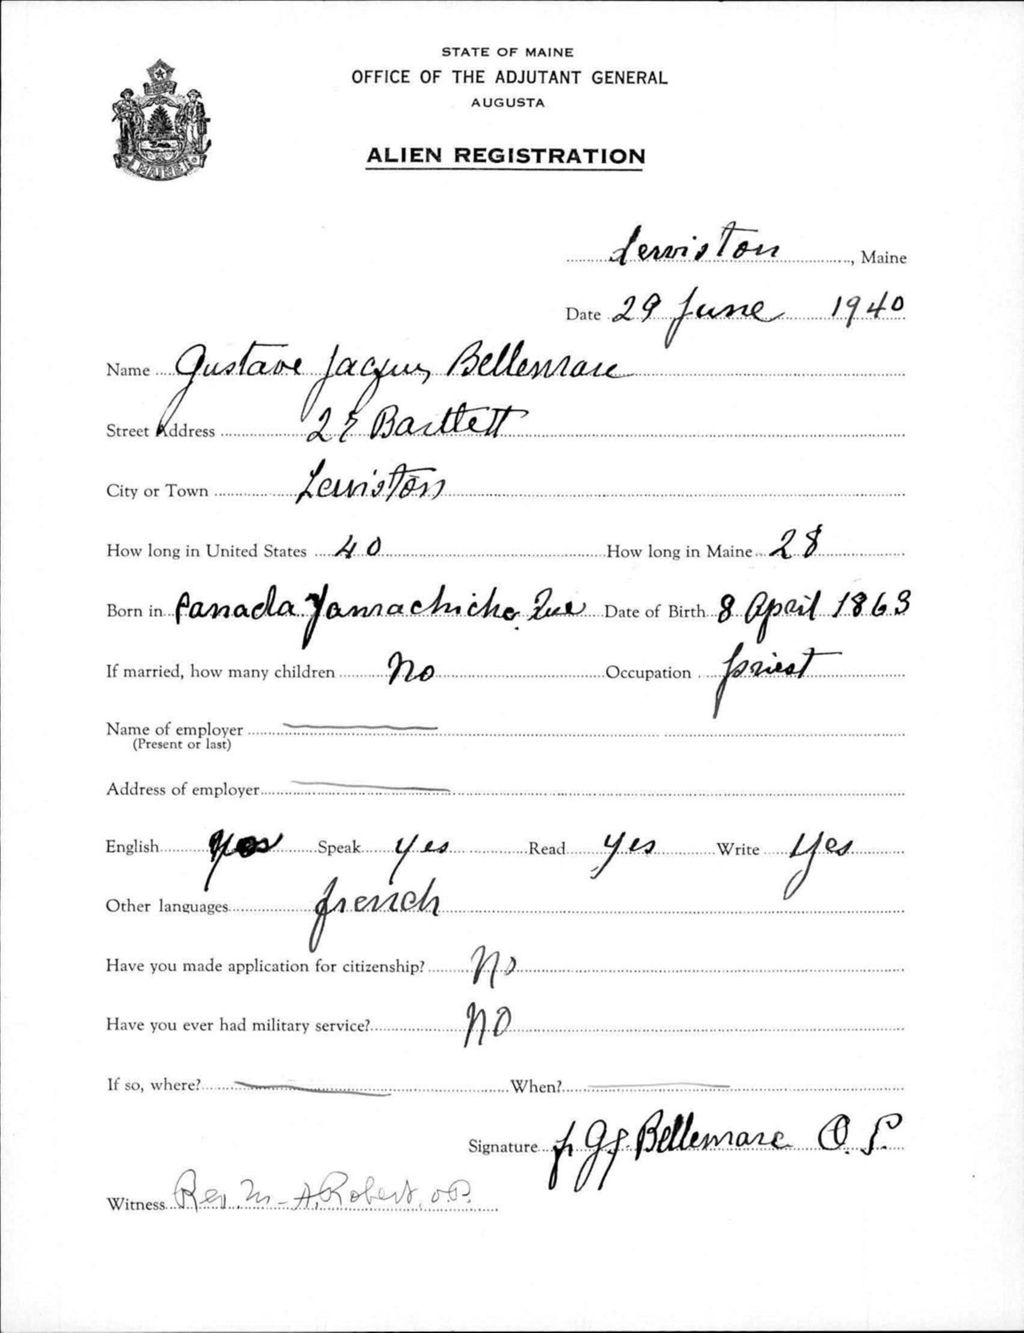 STATE OF MAINE
OFFICE OF THE ADJUTANT GENERAL
AUGUSTA
ALIEN REGISTRATION
MAINE
Lewiston, Maine
Date 29 June 1940
Name Gustave Jacques Bellemare
Street Address Bartlett
City or Town Lewiston
How long in United States 40 How long in Maine 28
Born in Canada Yamachiche Que Date of Birth 8 April 1863
If married, how many children No Occupation priest
Name of employer
(Present or last)
Address of employer
English yes Speak yes Read yes Write yes
Other languages french
Have you made application for citizenship? No
Have you ever had military service? NO
If so, where? When?
Signature fr G J Bellemare O. P.
Witness Rev. M-A. Robert, o.P.